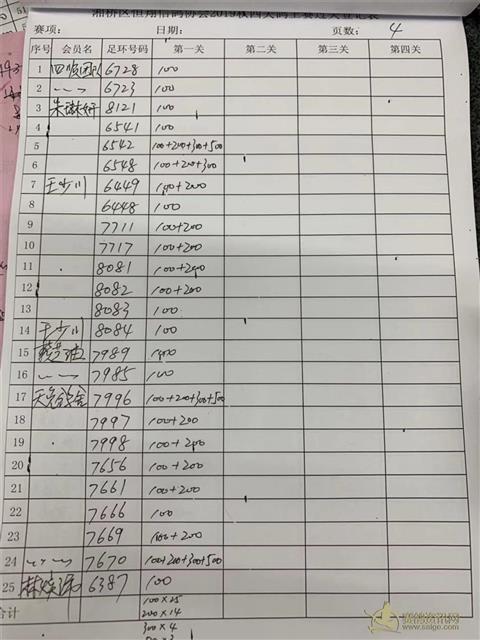 湘桥区恒翔信鸽协会2019秋四关鸽王赛过关登记表
赛项: 日期: 页数: 4
序号 会员名 足环号码 第一关 第二关 第三关 第四关
1 四顺团队 6728 100
2 6723 100
3 8121 100
4 6541 100
5 6542 100+200+300+500
6 6548 100+200+300
7 王少川 6449 100+200
8 6448 100
9 7711 100+200
10 7717 100+200
11 8081 100+200
12 8082 100+200
13 8083 100
14 王少川 8084 100
15 7989 100
16 7985 100
17 7996 100+200+300+500
18 7997 100+200
19 7998 100+200
20 7656 100+200
21 7661 100+200
22 7666 100
23 7669 100+200
24 7670 100+200+300+500
25 6387 100
合计 100×25
200×14
300×4
赛鸽资讯网
www.saige.com